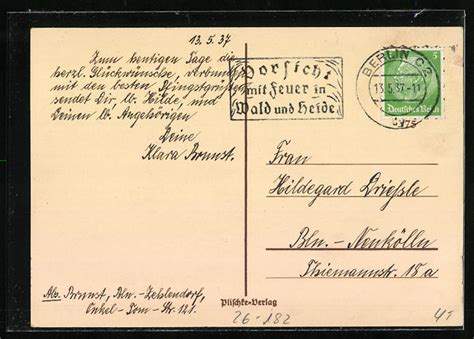 13.5.37
Zum heutigen Tage die
herzl. Glückwünsche, verbunden
mit den besten Pfingstgrüßen
sendet Dir, lb. Hilde, und
Deinen lb. Angehörigen
Deine
Klara Brunst.
Vorsicht
mit Feuer in
Wald und Heide
BERLIN C2
13.5.37.-11
5
Deutsches Reich
Frau
Hildegard
Bln.-Neukölln
Thiemannstr. 18a
Abs. Brunst, Bln.-Zehlendorf,
Onkel-Tom-Str. 121.
Plischke-Verlag
26-182